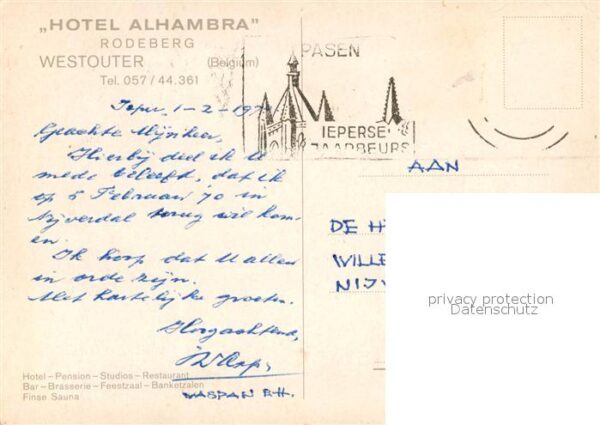 „HOTEL ALHAMBRA”
RODEBERG
WESTOUTER (Belgium)
Tel. 057/44.361
PASEN
IEPERSE
JAARBEURS
Ieper, 1-2-19
Geachte Mijnheer,
Hierbij deel ik U
mede beleefd, dat ik
op 5 Februari 70 in
Nijverdal terug wil kom-
en.
Ik hoop dat U alles
in orde zijn.
Met hartelijke groeten.
Hoogachtend,
WASPAN R.H.
AAN
DE H
WILLE
NIJV
privacy protection
Datenschutz
Hotel – Pension – Studios – Restaurant
Bar – Brasserie – Feestzaal – Banketzalen
Finse Sauna